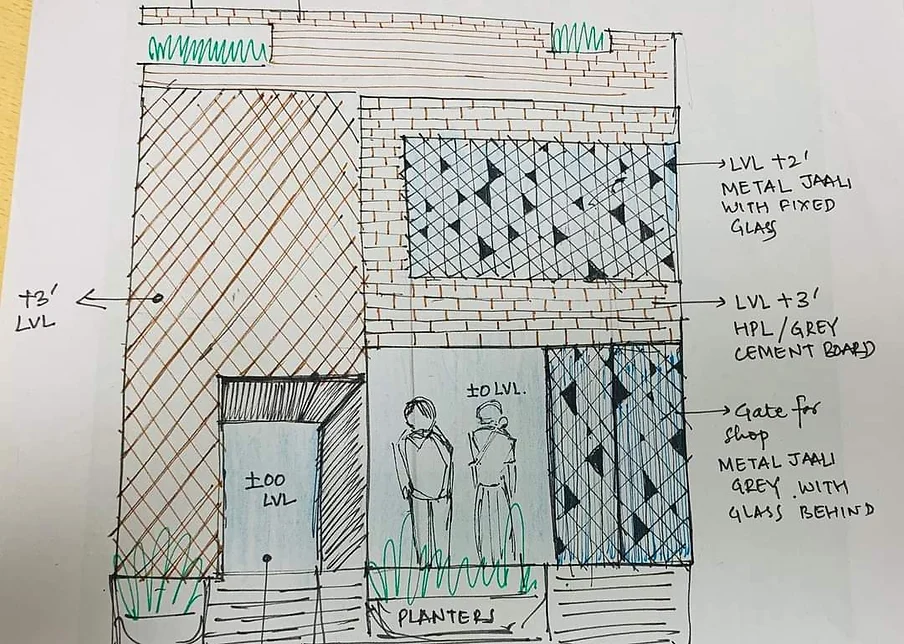 LVL +2'
METAL JAALI
WITH FIXED
GLASS
+3'
LVL
LVL +3'
HPL/GREY
CEMENT BOARD
±0 LVL.
Gate for
shop
METAL JAALI
GREY WITH
GLASS BEHIND
±00
LVL
PLANTERS